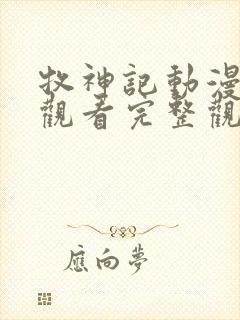 牧神記動漫
觀看完整觀
應向夢